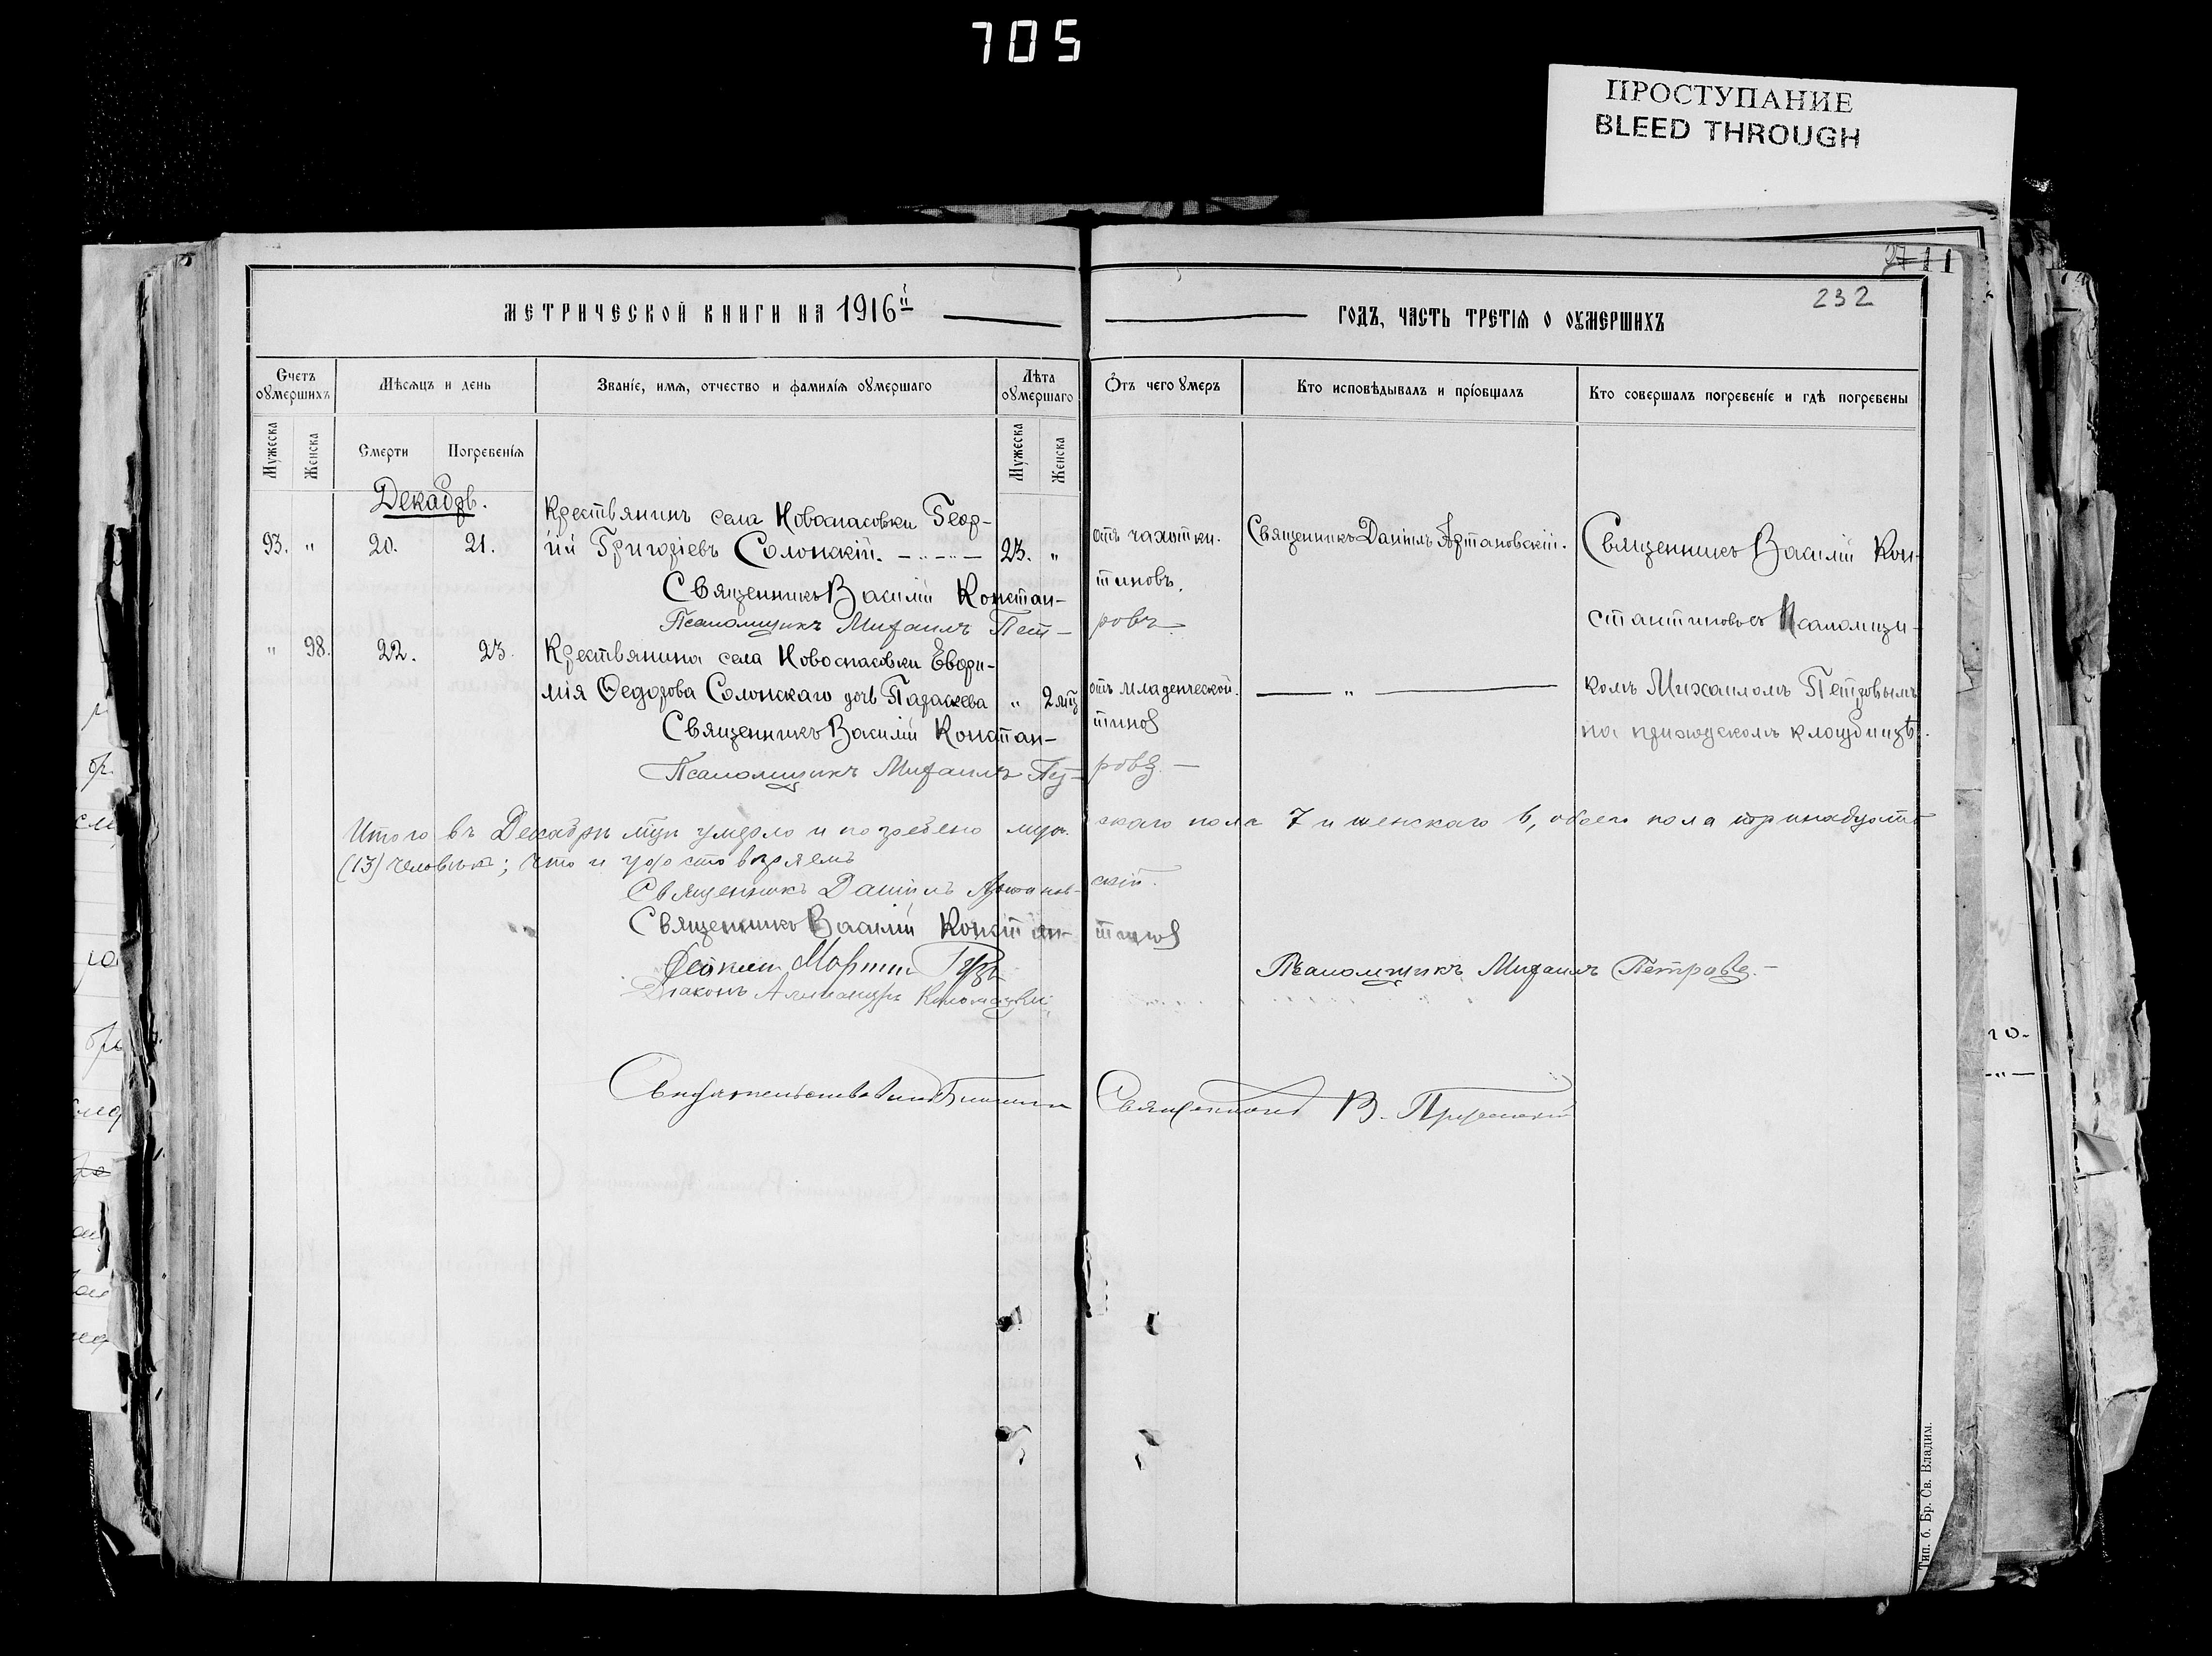 705
ПРОСТУПАНИЕ
BLEED THROUGH
232
МЕТРИЧЕСКОЙ КНИГИ НА 1916й ГОДЪ, ЧАСТЬ ТРЕТІЯ О ОУМЕРШИХЪ
Счетъ оумершихъ
Мѣсяцъ и день
Званіе, имя, отчество и фамилія оумершаго
Лѣта оумершаго
Отъ чего умеръ
Кто исповѣдывалъ и пріобщалъ
Кто совершалъ погребеніе и гдѣ погребены
Мужеска
Женска
Смерти
Погребенія
Мужеска
Женска
Декабрь.
Крестьянинъ села Новоспасовки Геор-
93. " 20. 21. гій Григоріевъ Солонскій. 23. " отъ чахотки. Священникъ Даніилъ Артановскій. Священникъ Василій Кон-
Священникъ Василій Константиновъ.
Псаломщикъ Михаилъ Петровъ стантиновъ съ Псаломщи-
" 98. 22. 23. Крестьянина села Новоспасовки Евфи-
мія Ѳедорова Солонскаго дочь Параскева " 2 мц отъ младенческой. — " — комъ Михаиломъ Петровымъ
Священникъ Василій Константинов на приходскомъ кладбищѣ.
Псаломщикъ Михаилъ Петровъ. —
Итого въ Декабрѣ мцѣ умерло и погребено мужскаго пола 7 и женскаго 6, обоего пола тринадцать
(13) человѣкъ; что и удостовѣряемъ
Священникъ Даніилъ Артановскій.
Священникъ Василій Константинов
Діаконъ Александръ
Псаломщикъ Михаилъ Петровъ. —
Священникъ В.
Тип. б. Бр. Св. Владим.